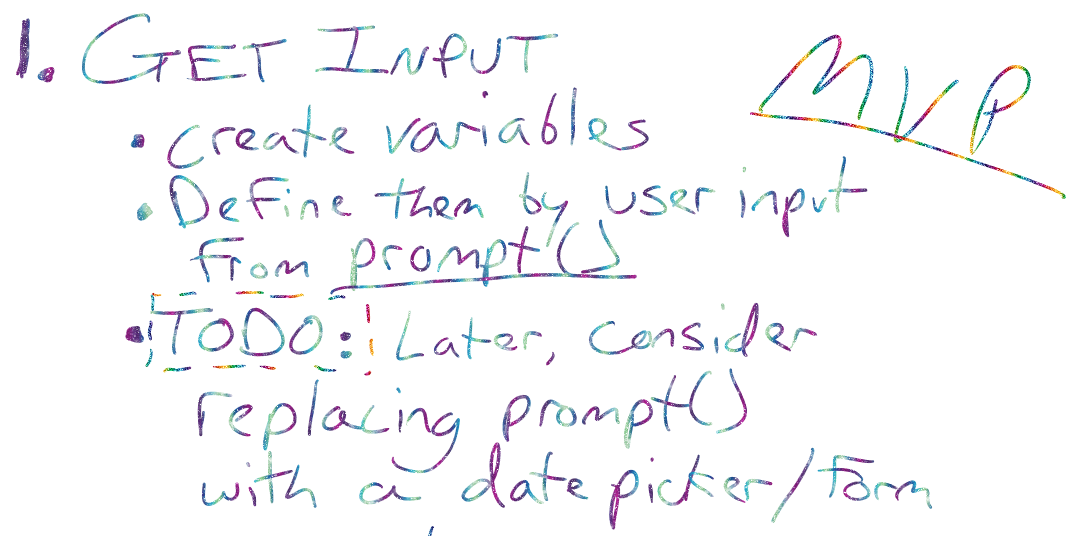 1. GET INPUT
MVP
• create variables
• Define them by user input
from prompt()
• TODO: Later, consider
replacing prompt()
with a date picker/form